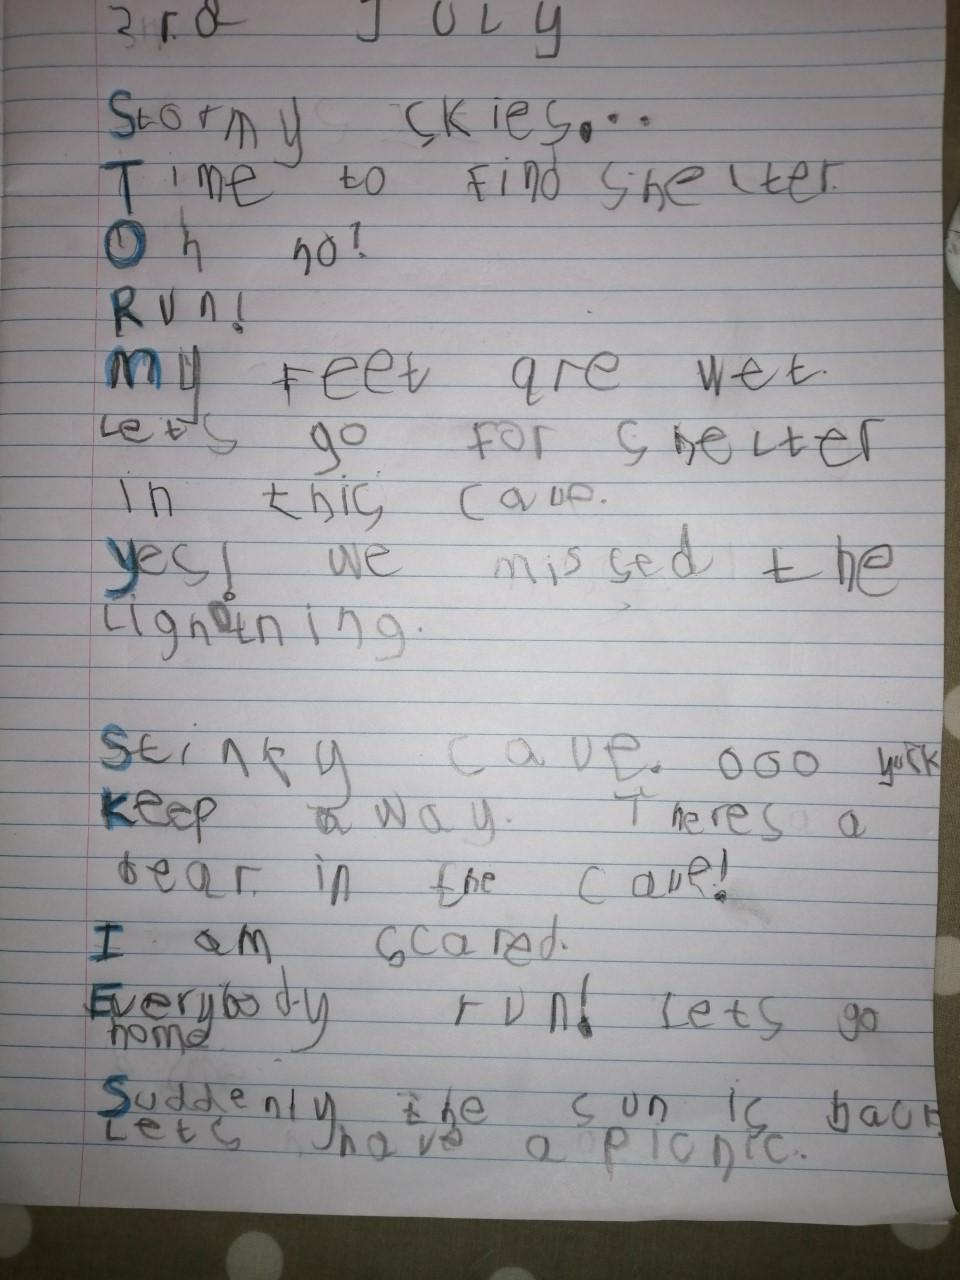 3rd July
Stormy skies...
Time to find shelter.
Oh no!
Run!
My feet are wet.
Lets go for shelter
in this cave.
Yes! we missed the
lightning.
Stinky cave. ooo yuck
Keep away. Theres a
bear in the cave!
I am scared.
Everybody run! Lets go
home
Suddenly the sun is back
Lets have a picnic.